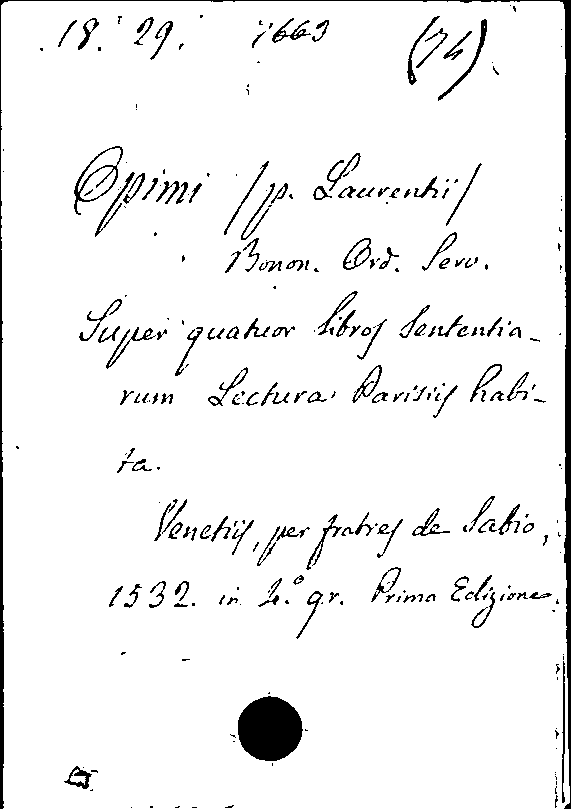 18. 29. 7663 (74)
Opimi /p. Laurentii/
Bonon. Ord. Serv.
Super quatuor libros Sententia-
rum Lectura Parisiis habi-
ta.
Venetiis, per fratres de Sabio,
1532. in 4.º gr. Prima Edizione.